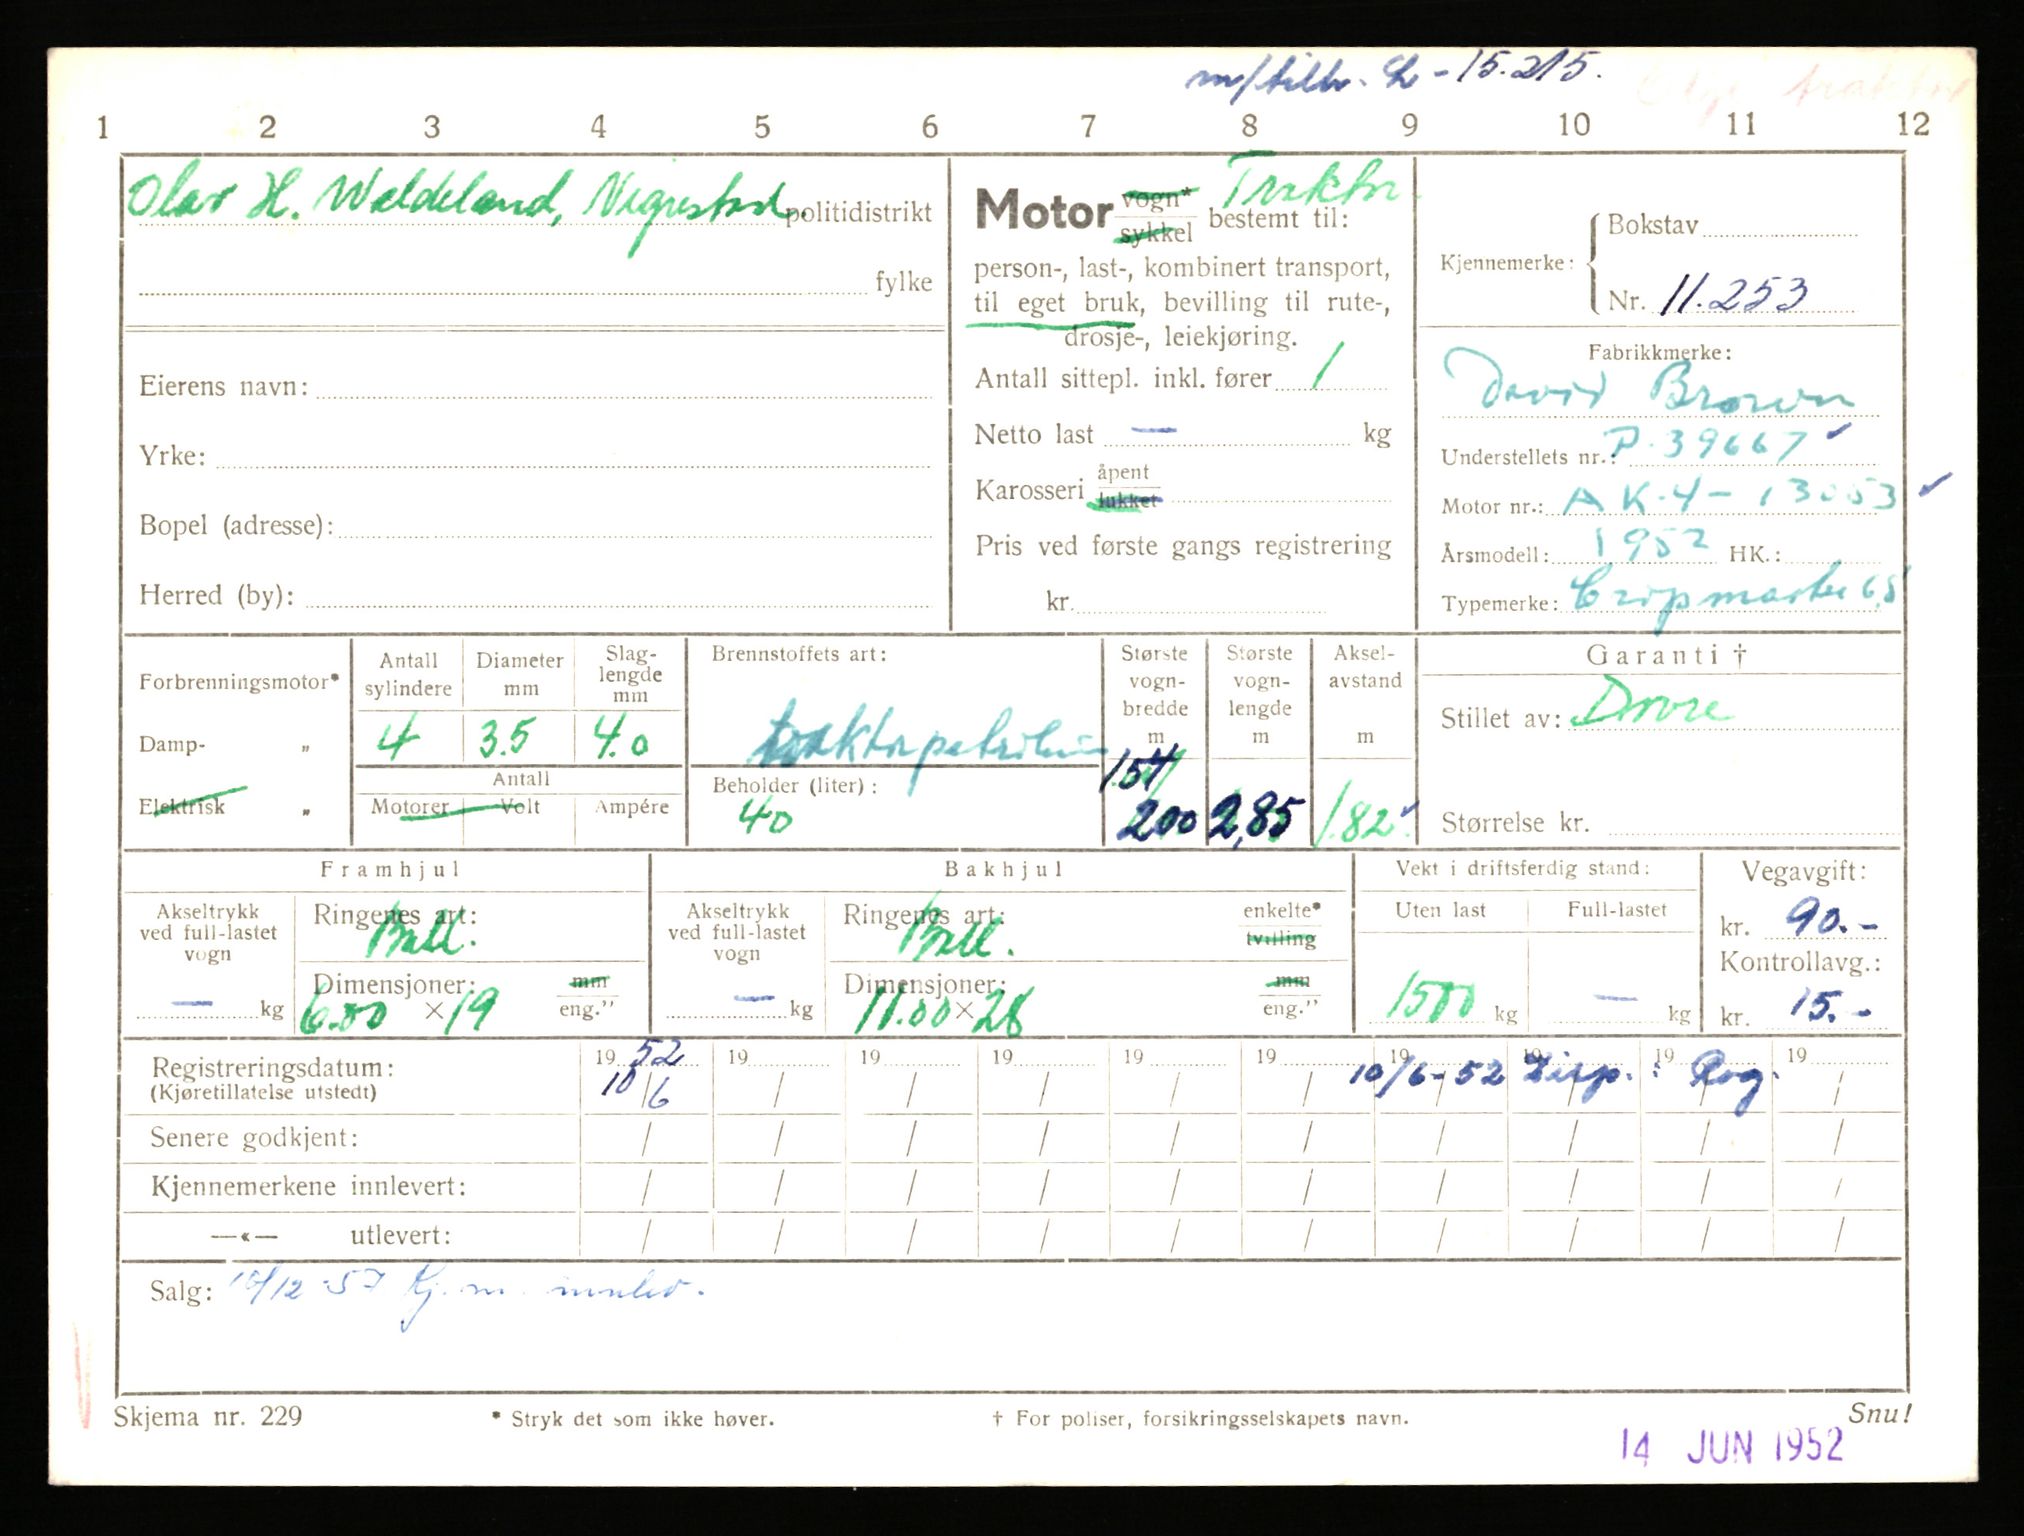 m/tilh. L - 15.215.
1 2 3 4 5 6 7 8 9 10 11 12
Olav H. Waldeland, Vigrestad. politidistrikt
fylke
Eierens navn:
Yrke:
Bopel (adresse):
Herred (by):
Traktor
Motor vogn* sykkel bestemt til:
person-, last-, kombinert transport,
til eget bruk, bevilling til rute-,
drosje-, leiekjøring.
Antall sittepl. inkl. fører 1
Netto last — kg
Karosseri åpent lukket
Pris ved første gangs registrering
kr.
Kjennemerke: Bokstav
Nr. 11.253
Fabrikkmerke:
David Brown
Understellets nr.: P. 39667 ✓
Motor nr.: AK.4 - 13053 ✓
Årsmodell: 1952 HK.:
Typemerke: Cropmaster 6,8
Forbrenningsmotor*
Damp- „
Elektrisk „
Antall sylindere Diameter mm Slag-lengde mm
4 3.5 4.0
Antall
Motorer Volt Ampére
Brennstoffets art:
traktorpetroleum
Beholder (liter):
40
Største vogn-bredde m
1.54
200
Største vogn-lengde m
2,85
Aksel-avstand m
1.82 ✓
Garanti †
Stillet av: Dovre
Størrelse kr.
Framhjul
Akseltrykk ved full-lastet vogn
— kg
Ringenes art:
Ball.
Dimensjoner: mm
6.00 × 19 eng."
Bakhjul
Akseltrykk ved full-lastet vogn
— kg
Ringenes art: enkelte*
Ball. tvilling
Dimensjoner: mm
11.00 × 28 eng."
Vekt i driftsferdig stand:
Uten last Full-lastet
1500 kg — kg
Vegavgift:
kr. 90.-
Kontrollavg.:
kr. 15.-
Registreringsdatum: 19 52 19 19 19 19 19 19 19 19 19
(Kjøretillatelse utstedt) 10/6 / / / / / 10/6-52 Disp. : Rog.
Senere godkjent: / / / / / / / / / /
Kjennemerkene innlevert: / / / / / / / / / /
—«— utlevert: / / / / / / / / / /
Salg: /12-57 Kj. m. innlev.
Skjema nr. 229 * Stryk det som ikke høver. † For poliser, forsikringsselskapets navn. Snu!
14 JUN 1952